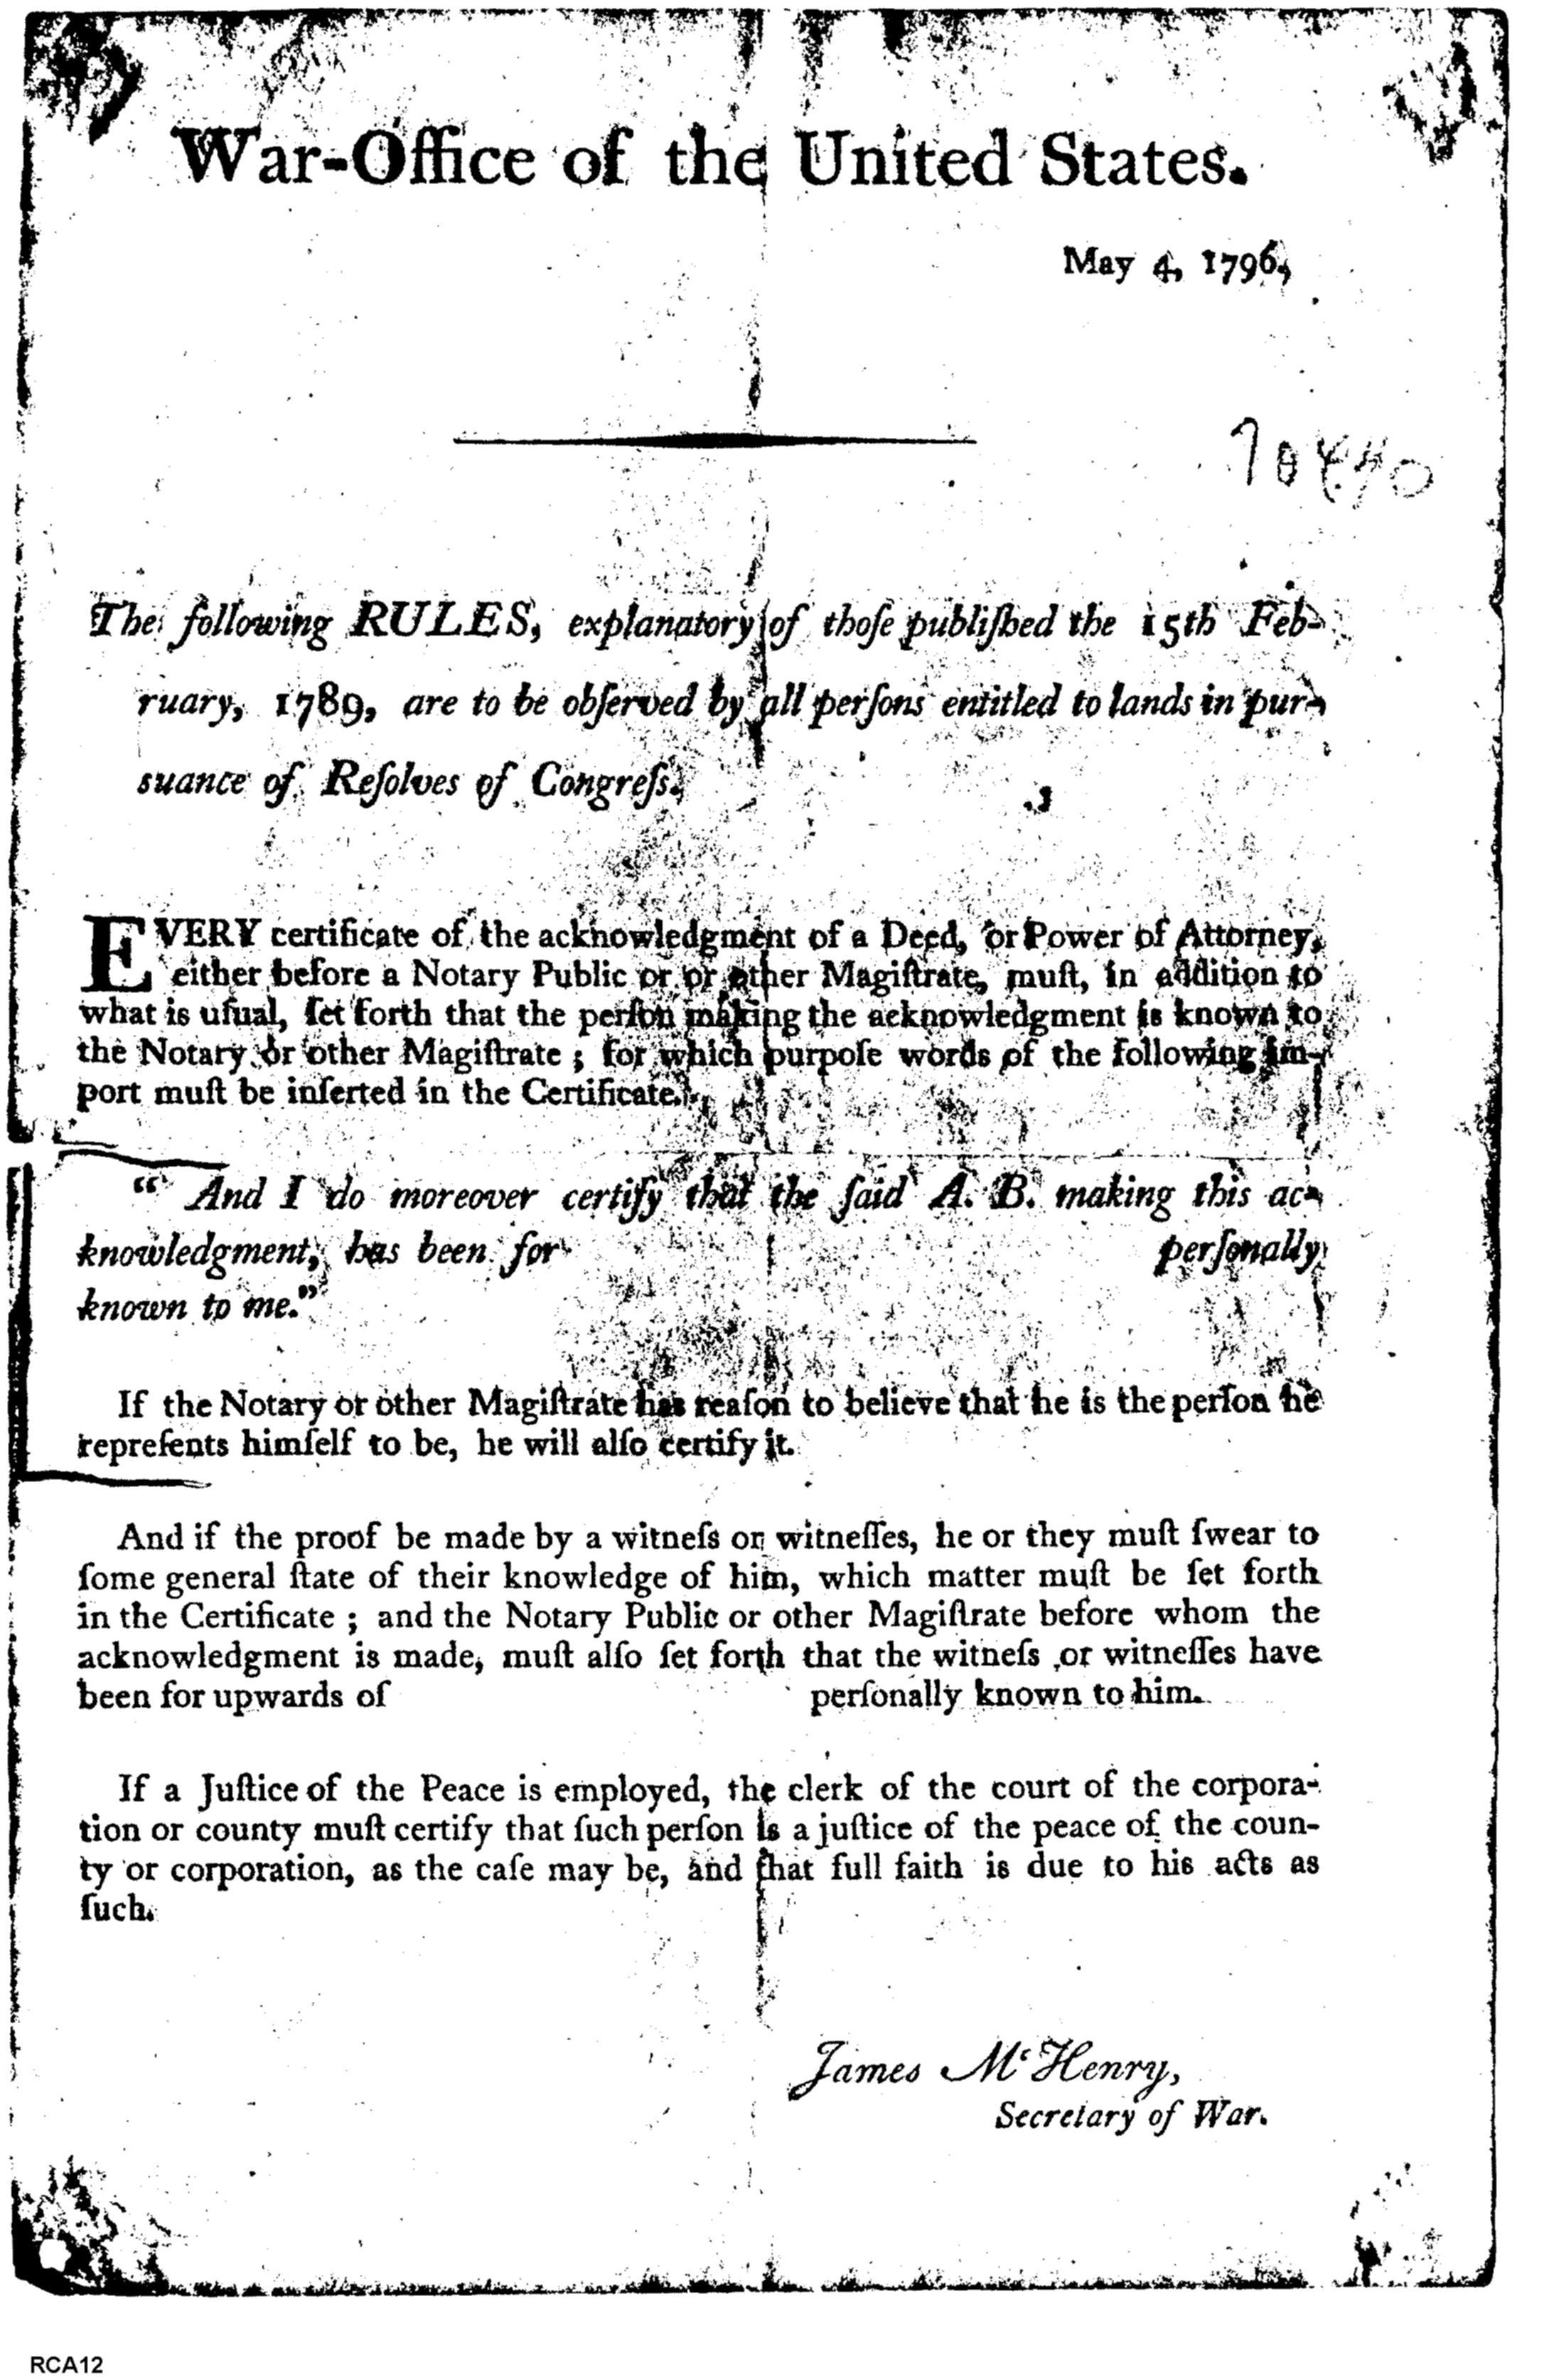 War-Office of the United States.
May 4, 1796,
The following RULES, explanatory of thoſe publiſhed the 15th Feb-
ruary, 1789, are to be obſerved by all perſons entitled to lands in pur-
suance of Reſolves of Congreſs.
EVERY certificate of the acknowledgment of a Deed, or Power of Attorney,
either before a Notary Public or or other Magiſtrate, muſt, in addition to
what is uſual, ſet forth that the perſon making the acknowledgment is known to
the Notary or other Magiſtrate ; for which purpoſe words of the following im-
port muſt be inſerted in the Certificate.
“ And I do moreover certify that the ſaid A. B. making this ac-
knowledgment, has been for perſonally
known to me.”
If the Notary or other Magiſtrate has reaſon to believe that he is the perſon he
repreſents himſelf to be, he will alſo certify it.
And if the proof be made by a witneſs or witneſſes, he or they muſt ſwear to
ſome general ſtate of their knowledge of him, which matter muſt be ſet forth
in the Certificate ; and the Notary Public or other Magiſtrate before whom the
acknowledgment is made, muſt alſo ſet forth that the witneſs or witneſſes have
been for upwards of perſonally known to him.
If a Juſtice of the Peace is employed, the clerk of the court of the corpora-
tion or county muſt certify that ſuch perſon is a juſtice of the peace of the coun-
ty or corporation, as the caſe may be, and that full faith is due to his acts as
ſuch.
James McHenry,
Secretary of War.
RCA12